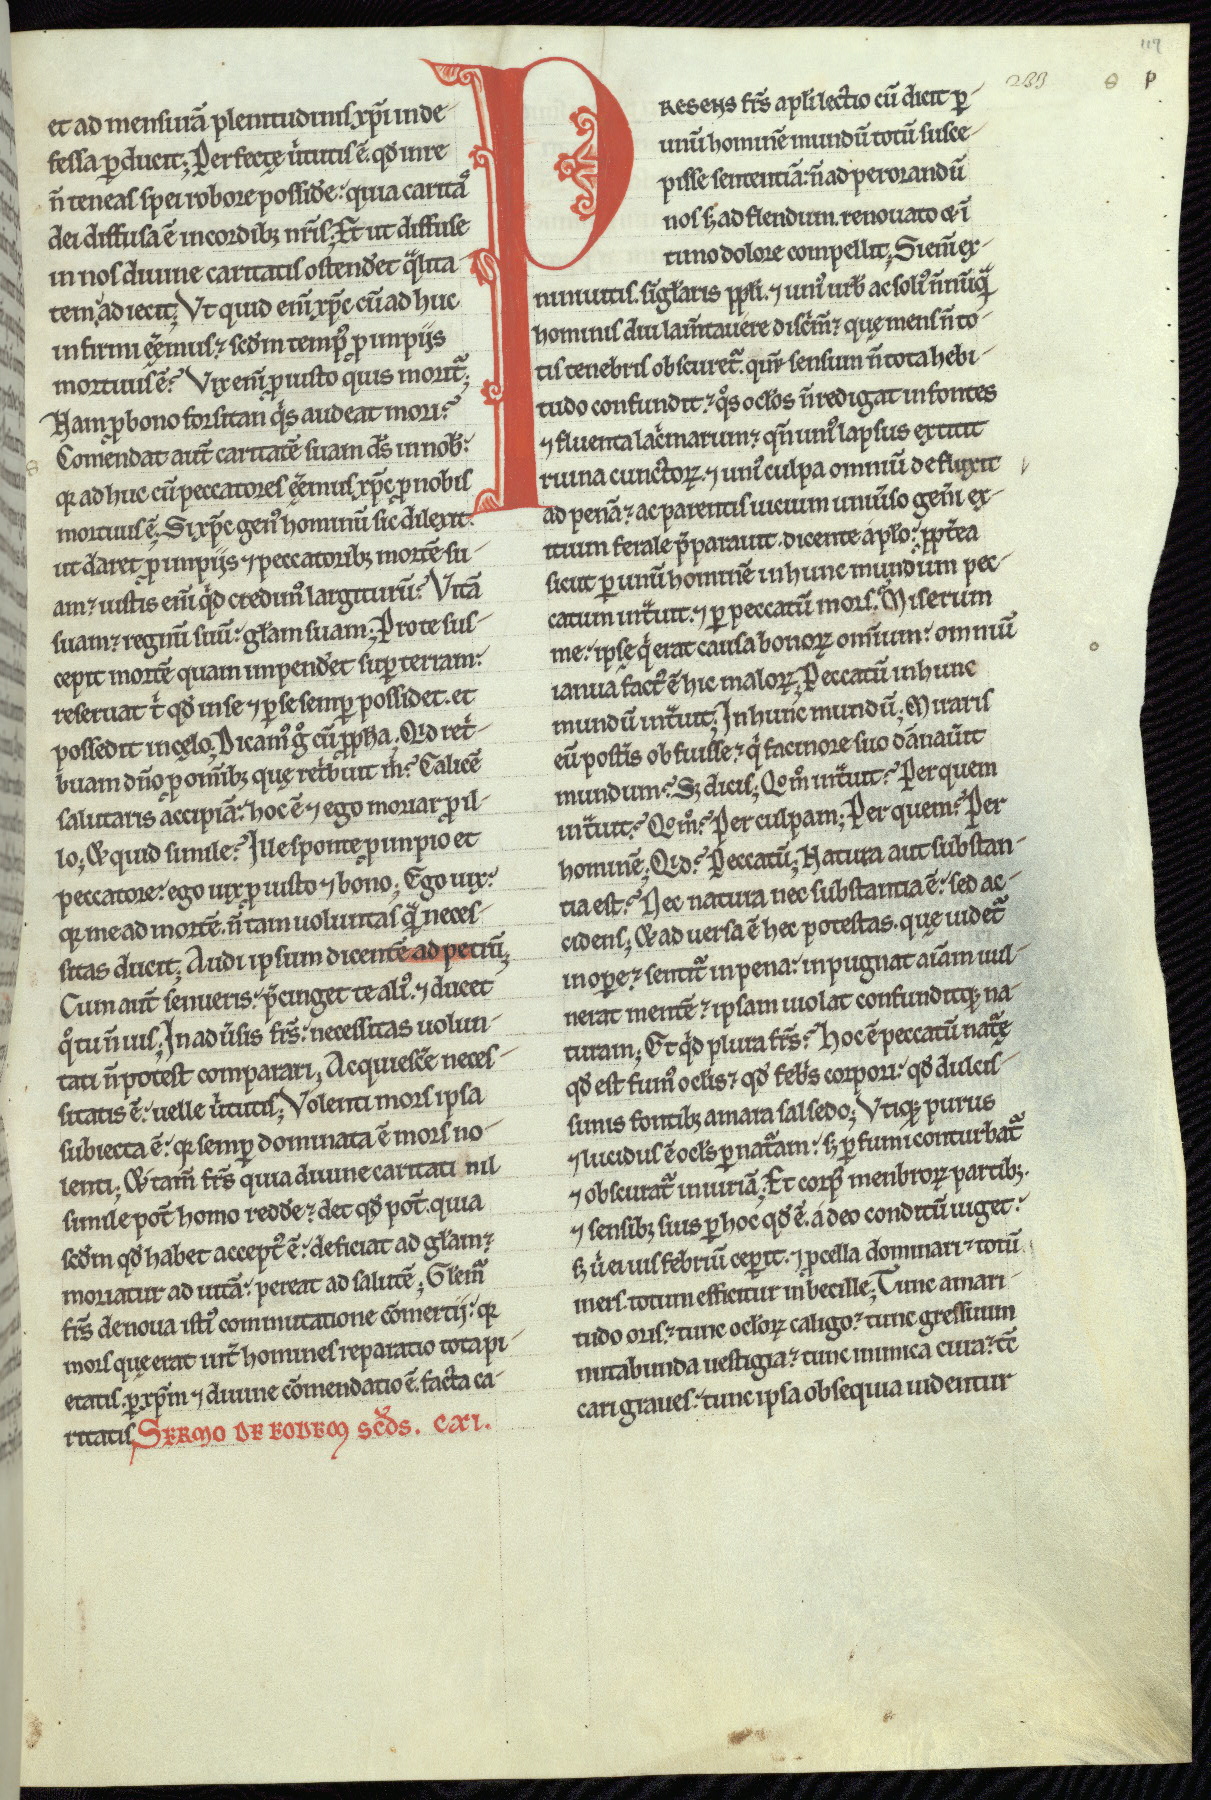 119
233 P
et ad mensurā plenitudinis xp̄i inde
fessa p̱ducit; Perfectę v̓tutis ē. qđ in re
n̄ teneas spei robore posside: quia caritaˢ
dei diffusa ē in cordibꝫ nr̄is; Et ut diffuse
in nos diuine caritatis ostendęt qͣlita
tem: adiecit; Vt quid eni̅ xp̄c cū ad huc
infirmi eēmus? scđm temp⁹ ꝓ impijs
mortuus ē? Vix eni̅ ꝓ iusto quis morit᷑;
Nam ꝓ bono forsitan qͥs audeat mori?
Cōmendat aut̄ caritatē suam dˢ̄ in nob̄:
qꝛ ad huc cū peccatores eēmus xp̄c ꝓ nobis
mortuus ē; Si xp̄c gen⁹ hominū sic dilexit:
ut daret ꝓ impijs ⁊ peccatoribꝫ mortē su-
am? iustis eni̅ qͥd credim⁹ largiturū? Vitā
suam? regnū suū: gl̄am suam; Pro te sus-
cepit mortē quam impendęt sup̱ terram:
reseruat t̓ qđ in se ⁊ p̱ se semp̱ possidet. et
possedit in cęlo; Dicam⁹ g̊ cū ꝓph̄a. Qͥd ret̓-
buam dn̄o ꝓ om̄ibꝫ quę ret̓buit m̓? Calicē
salutaris accipiā: hoc ē ⁊ ego moriar ꝓ il-
lo; Et quid simile? Ille sponte ꝓ impio et
peccatore: ego uix ꝓ iusto ⁊ bono; Ego uix:
qꝛ me ad mortē. n̄ tam uoluntas qͣ̄ neces-
sitas ducit; Audi ipsum dicentē ad petrū;
Cum aut̄ senueris: p̄cinget te ali⁹. ⁊ ducet
qͦ tu n̄ uis; In adu̓sis fr̄s: necessitas uolun-
tati n̄ potest comparari; Acquiescē neces-
sitatis ē: uelle v̓tutis; Volenti mors ipsa
subiecta ē: qꝛ semp̱ dominata ē mors no-
lenti; Et tam̄ fr̄s quia diuine caritati nil
simile pot̄ homo reddē? det qđ pot̄. quia
scđm qđ habet accept⁹ ē: deficiat ad gl̄am?
moriatur ad uitā: pereat ad salutē; Gl̄em᷑
fr̄s de noua isti⁹ commutatione cōmertij: qꝛ
mors que erat int̓ homines reparatio tota pi-
etatis. ꝑ xp̄m ⁊ diuine cōmendatio ē facta ca-
ritatis; SERMO DE EODEM scđs. cxi.
PRESENS fr̄s apl̄i lectio cū dicit p̱
unū hominē mundū totū susce-
pisse sententiā: n̄ ad perorandū
nos sꝫ ad flendum. renouato & ī
tuno dolore compellit; Si eni̅ ex-
numitis. sigl̄aris ppl̄i. ⁊ uni⁹ urb̄ ac soli⁹ n̄ nūqͣ̄
hominis diu lam̄tauere discm̄? quę mens n̄ to-
tis tenebris obscuret᷑. qn̄ sensium n̄ tota hebi-
tudo confundit? qͦs ocl̄os n̄ redigat in fontes
⁊ fluenta lac̓marum? qn̄ uni⁹ lapsus extitit
ruina cunctoꝝ. ⁊ uni⁹ culpa omniū defluxit
ad penā? ac parentis uicium uniu̓so gen̓i ex-
itium ferale p̄parauit. dicente aplo: ꝓpt̓ea
sicut p̱ unū hominē in hunc mundum pec-
catum int̓uit. ⁊ p̱ peccatū mors; Miserum
me: ipse qͥ erat causa bonoꝝ omnium: omniū
ianua fact⁹ ē hic maloꝝ; Peccatū in hunc
mundū int̓uit; In hunc mundū; Miraris
eū post̓is obfuisse? qͥ facinore suo dānau̓it
mundum? Sꝫ dicis; Qom̊ int̓uit? Per quem
int̓uit? Qom̊? Per culpam; Per quem? Per
hominē; Qͥd? Peccatū; Natura aut substan-
tia est? Nec natura nec substantia ē: sed ac-
cidens; Et aduersa ē hec potestas. quę uidet᷑
in ope̱? sentit᷑ in pena: inpugnat aīam uul-
nerat mentē? ipsam uiolat confunditqꝫ na-
turam; Et qͥd plura fr̄s? Hoc ē peccatū natͣę
qđ est fum⁹ ocl̄is? qđ feb̓s corpori: qđ dulcis-
simis fontibꝫ amara salsedo; Vtiqꝫ purus
⁊ lucidus ē ocl̄s p̱ natͣam: sꝫ p̱ fumi conturbat᷑
⁊ obscurat᷑ iniuriā; Et corp⁹ menbroꝝ partibꝫ.
⁊ sensibꝫ suis p̱ hoc qđ ē. adeo conditū uiget:
sꝫ u̓ ei uis febriū cep̱it. ⁊ ꝓcella dominari? totū
iners. totum efficitur inbecille; Tunc amari-
tudo oris? tunc ocl̄oꝝ caligo? tunc gressuum
nutabunda uestigia? tunc inimica cura? tc̄
cari graues: tunc ipsa obsequia uidentur